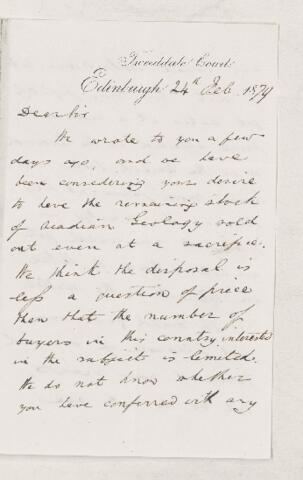 Tweeddale Court
Edinburgh 24th Feb 1879
Dear Sir
We wrote to you a few
days ago, and we have
been considering your desire
to have the remaining stock
of Acadian Geology sold
out even at a sacrifice.
We think the disposal is
less a question of price
than that the number of
buyers in this country, interested
in the subject is limited.
We do not know whether
you have conferred with any